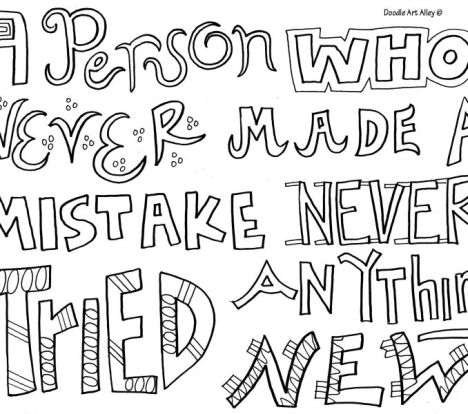 Doodle Art Alley ©
A Person WHO
NEVER MADE A
MISTAKE NEVER
TriED ANYthing
NEW